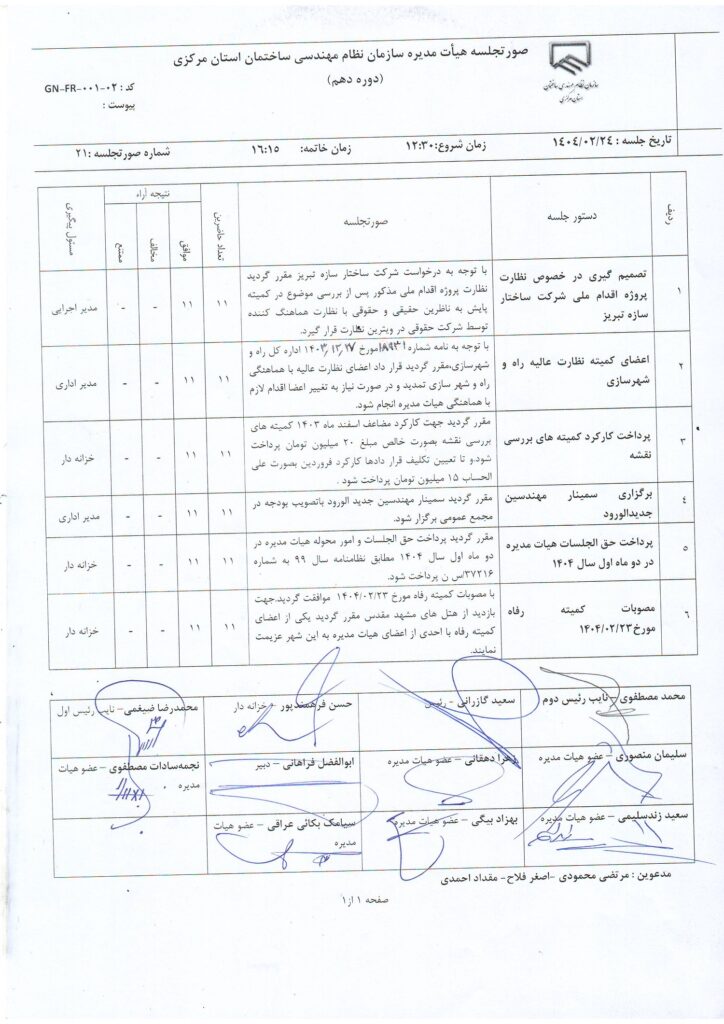 صورتجلسه هیأت مدیره سازمان نظام مهندسی ساختمان استان مرکزی
(دوره دهم)
سازمان نظام مهندسی ساختمان
استان مرکزی
کد : GN-FR-۰۰۱-۰۲
پیوست :
تاریخ جلسه : ۱۴۰۴/۰۲/۲۴ زمان شروع:۱۲:۳۰ زمان خاتمه: ۱۶:۱۵ شماره صورتجلسه :۲۱
ردیف دستور جلسه صورتجلسه تعداد حاضرین نتیجه آراء مسئول پیگیری
موافق مخالف ممتنع
۱
تصمیم گیری در خصوص نظارت
پروژه اقدام ملی شرکت ساختار
سازه تبریز
با توجه به درخواست شرکت ساختار سازه تبریز مقرر گردید
نظارت پروژه اقدام ملی مذکور پس از بررسی موضوع در کمیته
پایش به ناظرین حقیقی و حقوقی با نظارت هماهنگ کننده
توسط شرکت حقوقی در ویترین نظارت قرار گیرد.
۱۱ ۱۱ - - مدیر اجرایی
۲
اعضای کمیته نظارت عالیه راه و
شهرسازی
با توجه به نامه شماره مورخ ۱۴۰۳ اداره کل راه و
شهرسازی،مقرر گردید قرار داد اعضای نظارت عالیه با هماهنگی
راه و شهر سازی تمدید و در صورت نیاز به تغییر اعضا اقدام لازم
با هماهنگی هیات مدیره انجام شود.
۱۱ ۱۱ - - مدیر اداری
۳
پرداخت کارکرد کمیته های بررسی
نقشه
مقرر گردید جهت کارکرد مضاعف اسفند ماه ۱۴۰۳ کمیته های
بررسی نقشه بصورت خالص مبلغ ۲۰ میلیون تومان پرداخت
شود.و تا تعیین تکلیف قرار دادها کارکرد فروردین بصورت علی
الحساب ۱۵ میلیون تومان پرداخت شود .
۱۱ ۱۱ - - خزانه دار
۴
برگزاری سمینار مهندسین
جدیدالورود
مقرر گردید سمینار مهندسین جدید الورود باتصویب بودجه در
مجمع عمومی برگزار شود.
۱۱ ۱۱ - - مدیر اداری
۵
پرداخت حق الجلسات هیات مدیره
در دو ماه اول سال ۱۴۰۴
مقرر گردید پرداخت حق الجلسات و امور محوله هیات مدیره در
دو ماه اول سال ۱۴۰۴ مطابق نظامنامه سال ۹۹ به شماره
۳۷۲۱۶/س ن پرداخت شود.
۱۱ ۱۱ - - خزانه دار
۶
مصوبات کمیته رفاه
مورخ۱۴۰۴/۰۲/۲۳
با مصوبات کمیته رفاه مورخ ۱۴۰۴/۰۲/۲۳ موافقت گردید.جهت
بازدید از هتل های مشهد مقدس مقرر گردید یکی از اعضای
کمیته رفاه با احدی از اعضای هیات مدیره به این شهر عزیمت
نمایند.
۱۱ ۱۱ - - خزانه دار
محمد مصطفوی – نایب رئیس دوم سعید گازرانی – رئیس حسن فرهمندپور – خزانه دار محمدرضا ضیغمی – نایب رئیس اول
سلیمان منصوری – عضو هیات مدیره زهرا دهقانی – عضو هیات مدیره ابوالفضل فراهانی – دبیر نجمه‌سادات مصطفوی – عضو هیات
مدیره
سعید زندسلیمی – عضو هیات مدیره بهزاد بیگی – عضو هیات مدیره سیامک بکائی عراقی – عضو هیات
مدیره
مدعوین : مرتضی محمودی –اصغر فلاح- مقداد احمدی
صفحه ۱ از ۱